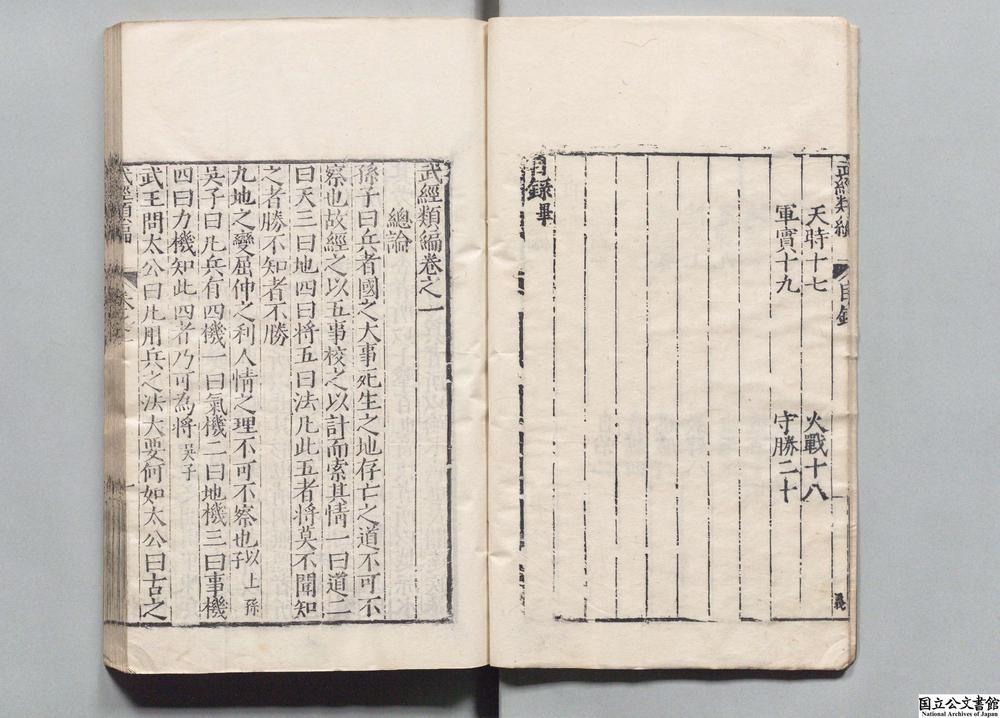 武經類編
目錄
天時十七 火戰十八
軍實十九 守勝二十
目錄畢
武經類編卷之一
總論
孫子曰兵者國之大事死生之地存亡之道不可不
察也故經之以五事校之以計而索其情一曰道二
曰天三曰地四曰將五曰法凡此五者將莫不聞知
之者勝不知者不勝
九地之變屈伸之利人情之理不可不察也以上孫子
吳子曰凡兵有四機一曰氣機二曰地機三曰事機
四曰力機知此四者乃可為將吳子
武王問太公曰凡用兵之法大要何如太公曰古之
武經類編
卷之一
一
国立公文書館
National Archives of Japan